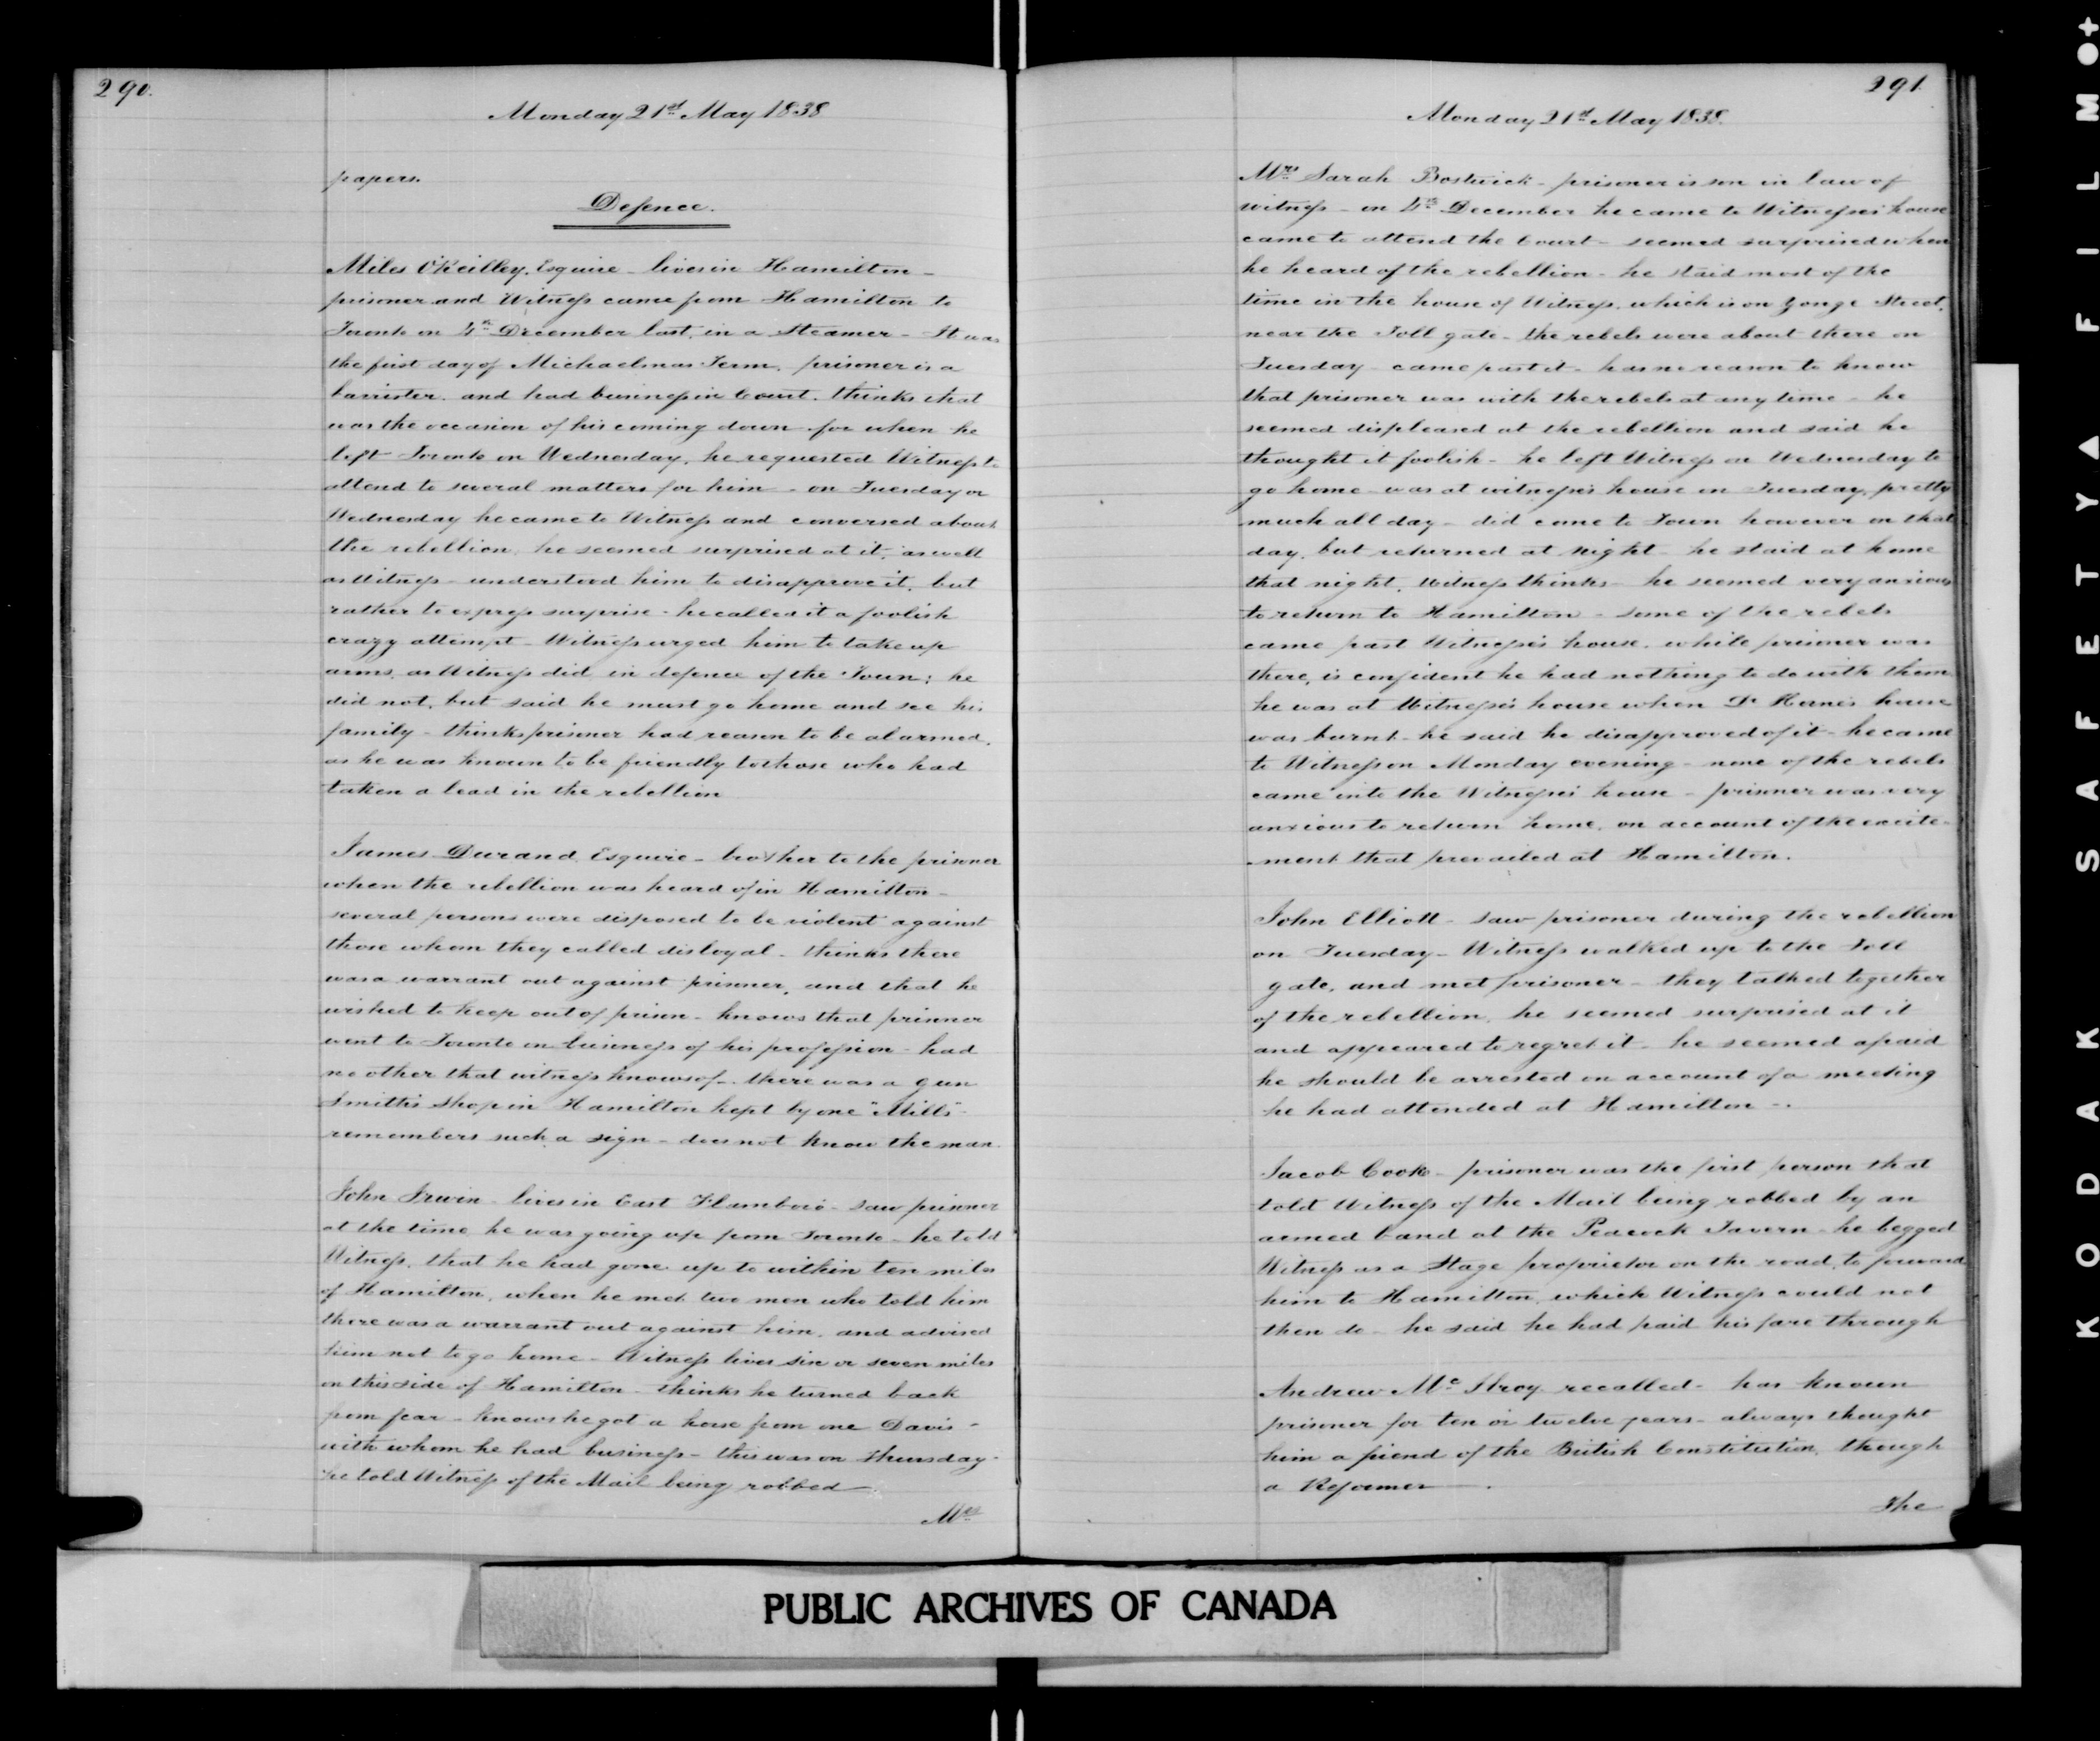 290.
Monday 21st May 1838
papers.
Defence.
Miles O'Reilley, Esquire - lives in Hamilton -
prisoner and Witness came from Hamilton to
Toronto on 4th December last, in a Steamer - It was
the first day of Michaelmas Term, prisoner is a
barrister. and had business in Court. thinks that
was the occasion of his coming down for when he
left Toronto on Wednesday, he requested Witness to
attend to several matters for him - on Tuesday or
Wednesday he came to Witness and conversed about
the rebellion, he seemed surprised at it, as well
as Witness - understood him to disapprove it, but
rather to express surprise - he called it a foolish
crazy attempt - Witness urged him to take up
arms, as Witness did in defence of the Town; he
did not, but said he must go home and see his
family - thinks prisoner had reason to be alarmed,
as he was known to be friendly to those who had
taken a lead in the rebellion
James Durand, Esquire - brother to the prisoner
when the rebellion was heard of in Hamilton -
several persons were disposed to be violent against
those whom they called disloyal - thinks there
was a warrant out against prisoner, and that he
wished to keep out of prison - knows that prisoner
went to Toronto on business of his profession - had
no other that witness knows of - there was a gun
Smith's Shop in Hamilton kept by one "Mills" -
remembers such a sign - does not know the man.
John Irwin - lives in East Flamboro' - saw prisoner
at the time he was going up from Toronto - he told
Witness, that he had gone up to within ten miles
of Hamilton, when he met two men who told him
there was a warrant out against him, and advised
him not to go home - Witness lives six or seven miles
on this side of Hamilton - thinks he turned back
from fear - knows he got a horse from one Davis -
with whom he had business - this was on Thursday -
he told Witness of the Mail being robbed
Mrs
291
Monday 21st May 1838.
Mrs Sarah Bostwick - prisoner is son in law of
witness - on 4th December he came to Witness's house
came to attend the Court - seemed surprised when
he heard of the rebellion - he staid most of the
time in the house of Witness, which is on Yonge Street,
near the Toll gate - the rebels were about there on
Tuesday - came past it - has no reason to know
that prisoner was with the rebels at any time - he
seemed displeased at the rebellion and said he
thought it foolish - he left Witness on Wednesday to
go home - was at witness's house on Tuesday, pretty
much all day - did come to Town however on that
day, but returned at night - he staid at home
that night, Witness thinks - he seemed very anxious
to return to Hamilton - some of the rebels
came past Witness's house, while prisoner was
there, is confident he had nothing to do with them
he was at Witness's house when Dr Horne's house
was burnt - he said he disapproved of it - he came
to Witness on Monday evening - none of the rebels
came into the Witness's house - prisoner was very
anxious to return home, on account of the excite-
-ment that prevailed at Hamilton.
John Elliott - saw prisoner during the rebellion
on Tuesday - Witness walked up to the Toll
gate, and met prisoner - they talked together
of the rebellion, he seemed surprised at it
and appeared to regret it - he seemed afraid
he should be arrested on account of a meeting
he had attended at Hamilton -.
Jacob Cook - prisoner was the first person that
told Witness of the Mail being robbed by an
armed band at the Peacock Tavern - he begged
Witness as a Stage proprietor on the road, to forward
him to Hamilton, which Witness could not
then do - he said he had paid his fare through
Andrew McIlroy recalled - has known
prisoner for ten or twelve years - always thought
him a friend of the British Constitution, though
a Reformer.
The
PUBLIC ARCHIVES OF CANADA
KODAK SAFETY FILM